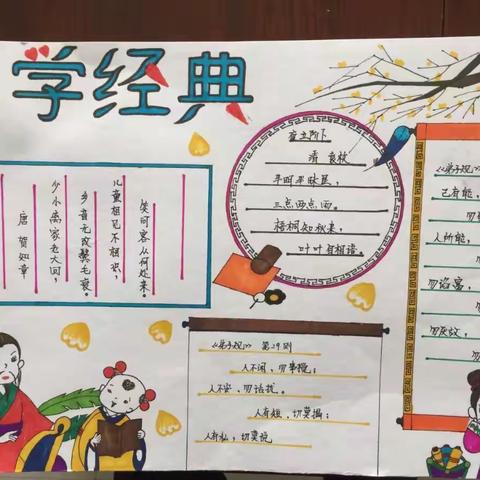 学经典
唐 贺知章
少小离家老大回，
乡音无改鬓毛衰。
儿童相见不相识，
笑问客从何处来。
夜立阶下
清 袁枚
半明半昧星，
三点两点雨。
梧桐知秋来，
叶叶自相语。
《弟子规》 第29则
人不闲，勿事搅；
人不安，勿话扰。
人有短，切莫揭；
人有私，切莫说
《弟子规》
己有能，
勿
人所能，
勿
勿谄富，
勿
勿厌故，
勿